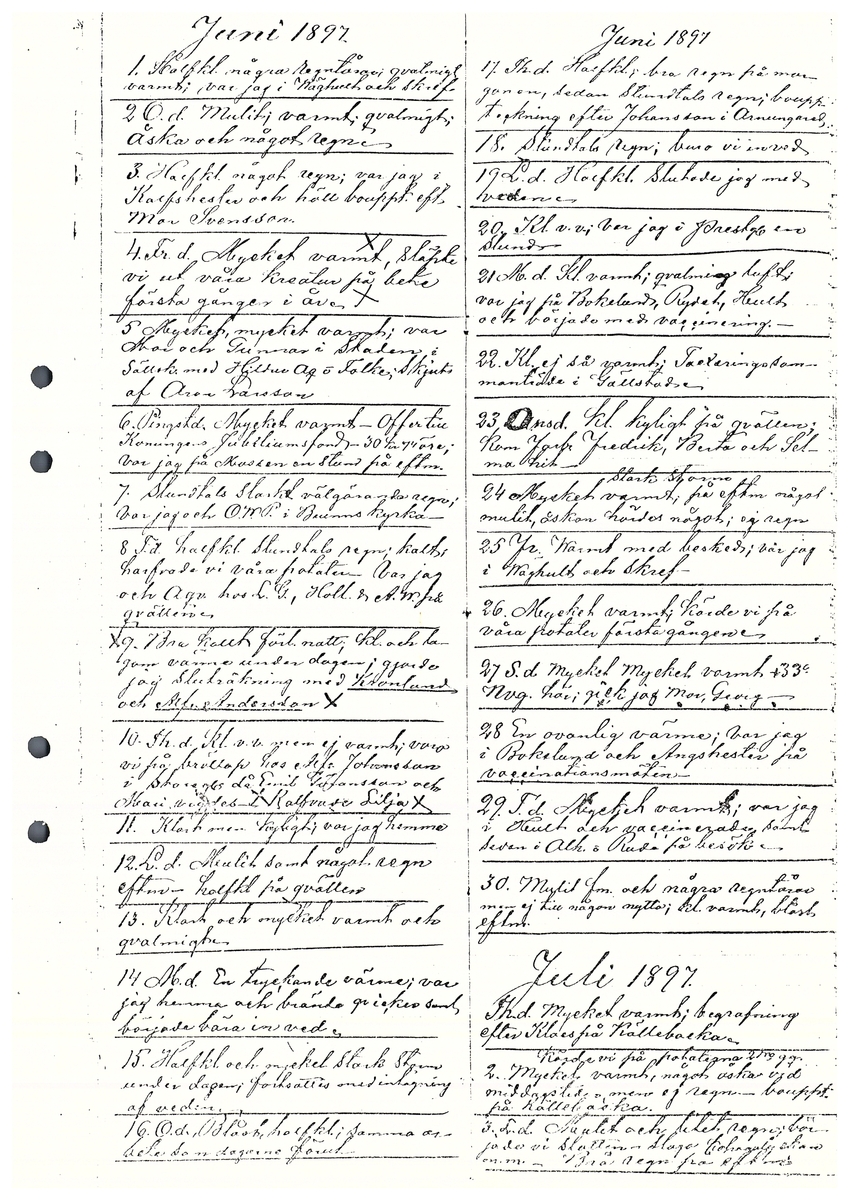 Juni 1897.
1. Halfkl. några regntårar; qvalmigt
varmt; var jag i Wäghult och Skref
2 O.d. Mulit; varmt; qvalmigt;
åska och något regn
3. Halfkl. något regn; var jag i
och höll bouppt. eft.
Mor Svensson.
4. Fr.d. Mycket varmt, släpte
vi ut våra kreatur på bete
första gången i år
5 Mycket, mycket varmt; var
Mor och Gunnar i Staden;
med o Folke; skjuts
af Aron Larsson
6. Pingstd. Mycket varmt - Offer till
Konungens Jubileumsfond - 30 kr 74 öre;
var jag på Mossen en stund på eftm.
7. Stundtals starkt välgörande regn;
var jag och O.W.P. i Brunns kyrka
8 T.d. halfkl. stundtals regn; kallt;
harfvade vi våra potater. Var jag
och Aga hos L. G., Holl. & A. W. på
qvällen
X 9. Bra kallt förl. natt, kl. och la-
gom värme under dagen; gjorde
jag sluträkning med Kronlund
och Alfr. Andersson X
10. Th.d. Kl. v.v. men ej varmt; voro
vi på bröllop hos Alfr. Johansson
i då Emil Johansson och
Mari vigdes - X Kalfvade Lilja X
11. Klart men kyligt; var jag hemma
12. L.d. Mulit samt något regn
eftm - halfkl på qvällen
13. Klart och mycket varmt och
qvalmight
14 M.d. En tryckande värme; var
jag hemma och brände samt
började bära in ved
15. Halfkl och mycket stark storm
under dagen; fortsattes med intagning
af veden
16. O.d. Blåst, halfkl; samma ar-
bete som dagarne förut
Juni 1897
17. Th.d. Halfkl; bra regn på mor-
gonen, sedan stundtals regn; boupp-
teckning efter Johansson i Arnungared
18. Stundtals regn; buro vi in ved
19 L.d. Halfkl. Slutade jag med
veden
20. Kl. v.v; var jag i Prestg. en
stund
21 M.d. Kl varmt; qvalmig luft;
var jag på Bokelund, Rydet, Hult
och började med vaccinering.
22. Kl. ej så varmt; Taxeringssam-
manträde i Gällstad
23. Onsd. kl. kyligt på qvällen;
kom Fredrik, Berta och Sel-
ma hit
Stark storm
24 Mycket varmt; på eftm något
mulit, åskan hördes något; ej regn
25 Fr. Varmt med besked; var jag
i Wäghult och Skref
26. Mycket varmt; körde vi på
våra potater första gången
27 S.d Mycket Mycket varmt +33°
Nog. här; gick jag Mor, Georg
28 En ovanlig värme; var jag
i Bokelund och Ängshester på
vaccinationsmöten
29. T.d. Mycket varmt; var jag
i Hult och vaccinerade samt
seven i Alh. o Ruda på besök
30. Mylit fm. och några regntårar
men ej till någon nytta; kl. varmt, blåst
eftm.
Juli 1897.
Th.d. Mycket varmt; begrafning
efter Klaes på Källebacka
Körde vi på potaterna 2dra gg.
2. Mycket varmt, något åska vid
middagstid, men ej regn - bouppt.
på Källebacka.
3. L.d. Mulit och litet regn; bör-
jade vi slåttern
Bra regn på eftm